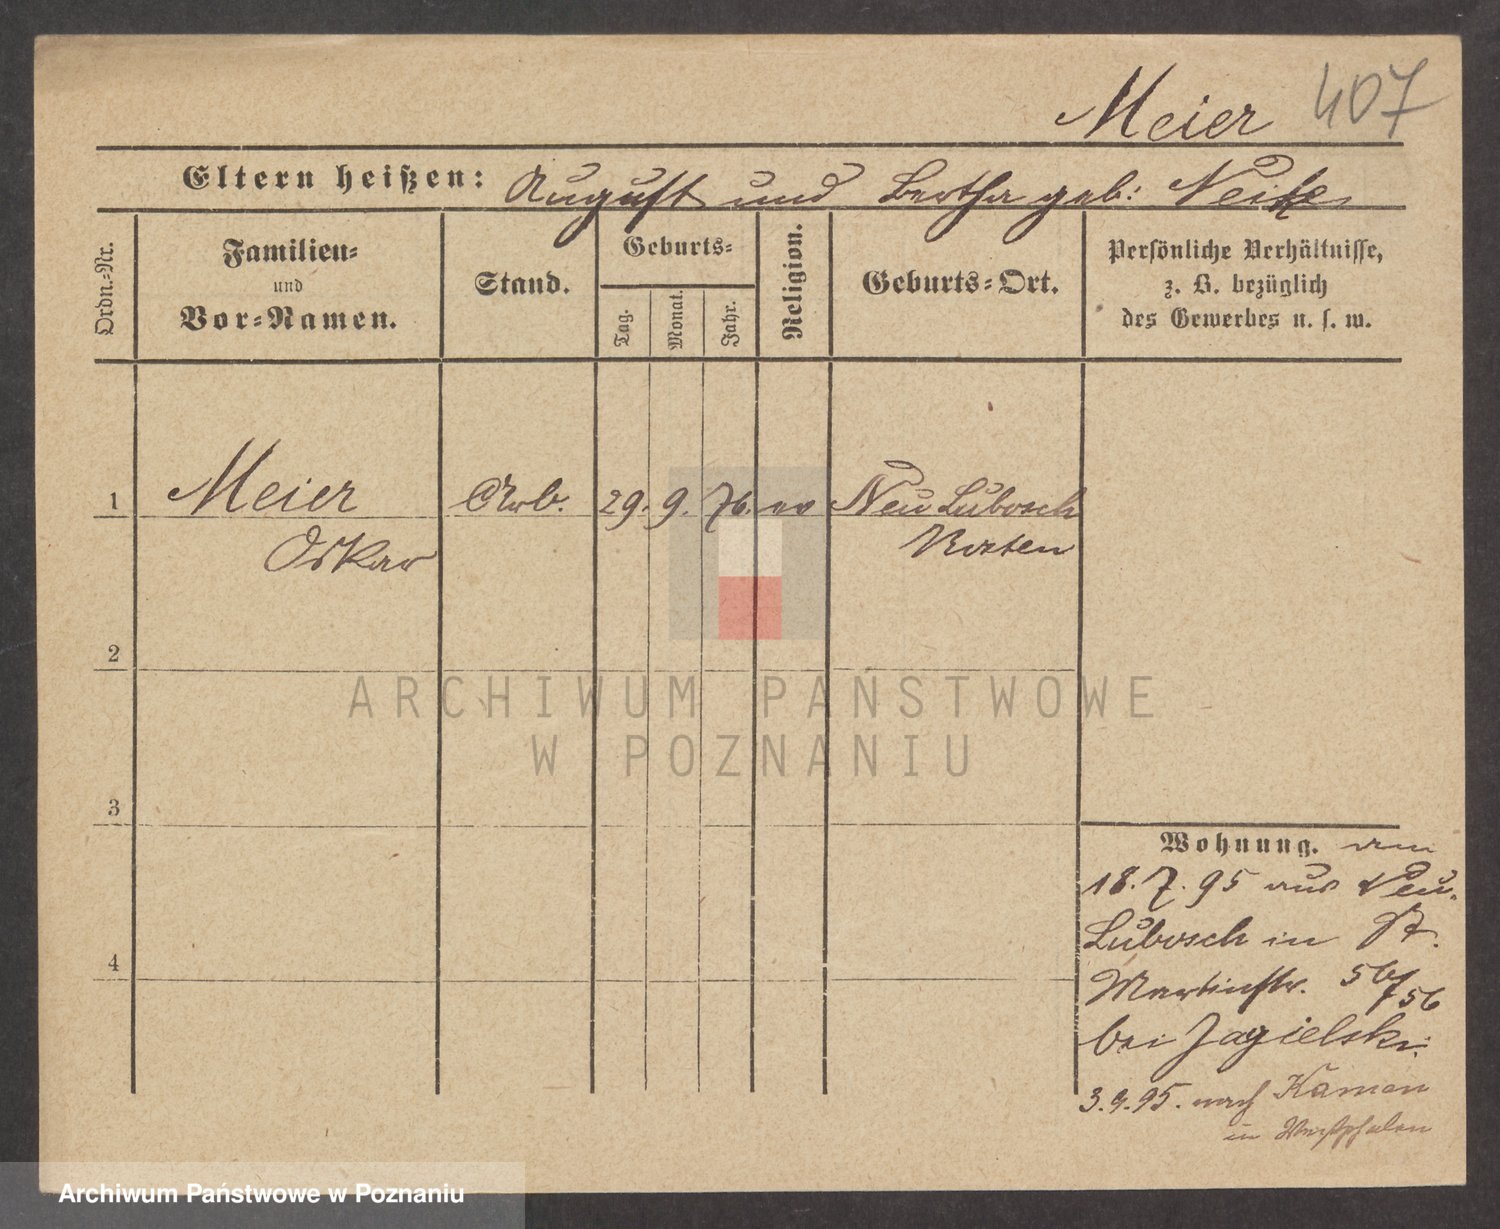 Meier 407
Eltern heißen: August und Bertha geb: Neike
Ordn.=Nr.
Familien=
und
Vor=Namen.
Stand.
Geburts=
Tag.
Monat.
Jahr.
Religion.
Geburts=Ort.
Persönliche Verhältnisse,
z. B. bezüglich
des Gewerbes u. s. w.
1 Meier Arb. 29. 9. 76. ev Neu Lubosch
Oskar Kosten
2
3
4
Wohnung. am
18. 7. 95 aus Neu-
Lubosch in St.
Martinstr. 56/
bei Jagielski.
3.9.95. nach Kamen
in Westphalen
ARCHIWUM PAŃSTWOWE
W POZNANIU
Archiwum Państwowe w Poznaniu